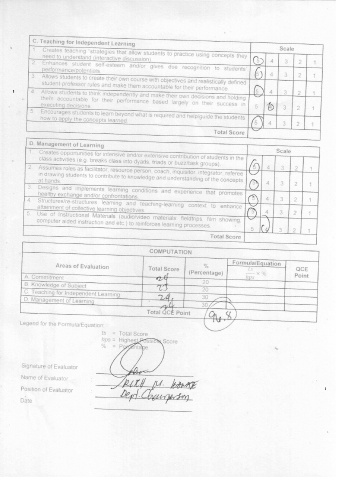 C. Teaching for Independent Learning
Scale
1. Creates teaching strategies that allow students to practice using concepts they need to understand (interactive discussion)
5 4 3 2 1
2. Enhances student self-esteem and/or gives due recognition to students' performance/potentials
5 4 3 2 1
3. Allows students to create their own course with objectives and realistically defined student-professor rules and make them accountable for their performance
5 4 3 2 1
4. Allows students to think independently and make their own decisions and holding them accountable for their performance based largely on their success in executing decisions
5 4 3 2 1
5. Encourages students to learn beyond what is required and help/guide the students how to apply the concepts learned
5 4 3 2 1
Total Score
D. Management of Learning
Scale
1. Creates opportunities for intensive and/or extensive contribution of students in the class activities (e.g. breaks class into dyads, triads or buzz/task groups)
5 4 3 2 1
2. Assumes roles as facilitator, resource person, coach, inquisitor, integrator, referee in drawing students to contribute to knowledge and understanding of the concepts at hands
5 4 3 2 1
3. Designs and implements learning conditions and experience that promotes healthy exchange and/or confrontations
5 4 3 2 1
4. Structures/re-structures learning and teaching-learning context to enhance attainment of collective learning objectives
5 4 3 2 1
5. Use of Instructional Materials (audio/video materials, fieldtrips, film showing, computer aided instruction and etc.) to reinforces learning processes
5 4 3 2 1
Total Score
COMPUTATION
Areas of Evaluation
Total Score
% (Percentage)
Formula/Equation
QCE Point
A. Commitment
B. Knowledge of Subject
C. Teaching for Independent Learning
D. Management of Learning
Total QCE Point
Legend for the Formula/Equation:
ts = Total Score
hps = Highest Possible Score
% = Percentage
Signature of Evaluator
Name of Evaluator
Position of Evaluator
Dept. Chairperson
Date